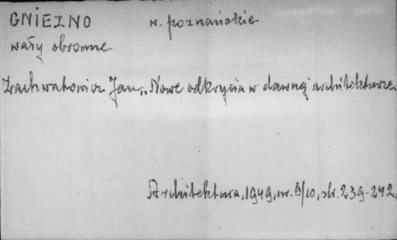 GNIEZNO w. poznańskie
wały obronne
Zachwatowicz Jan,: Nowe odkrycia w dawnej architekturze.
Architektura, 1949, nr. 9/10, str. 239-242.